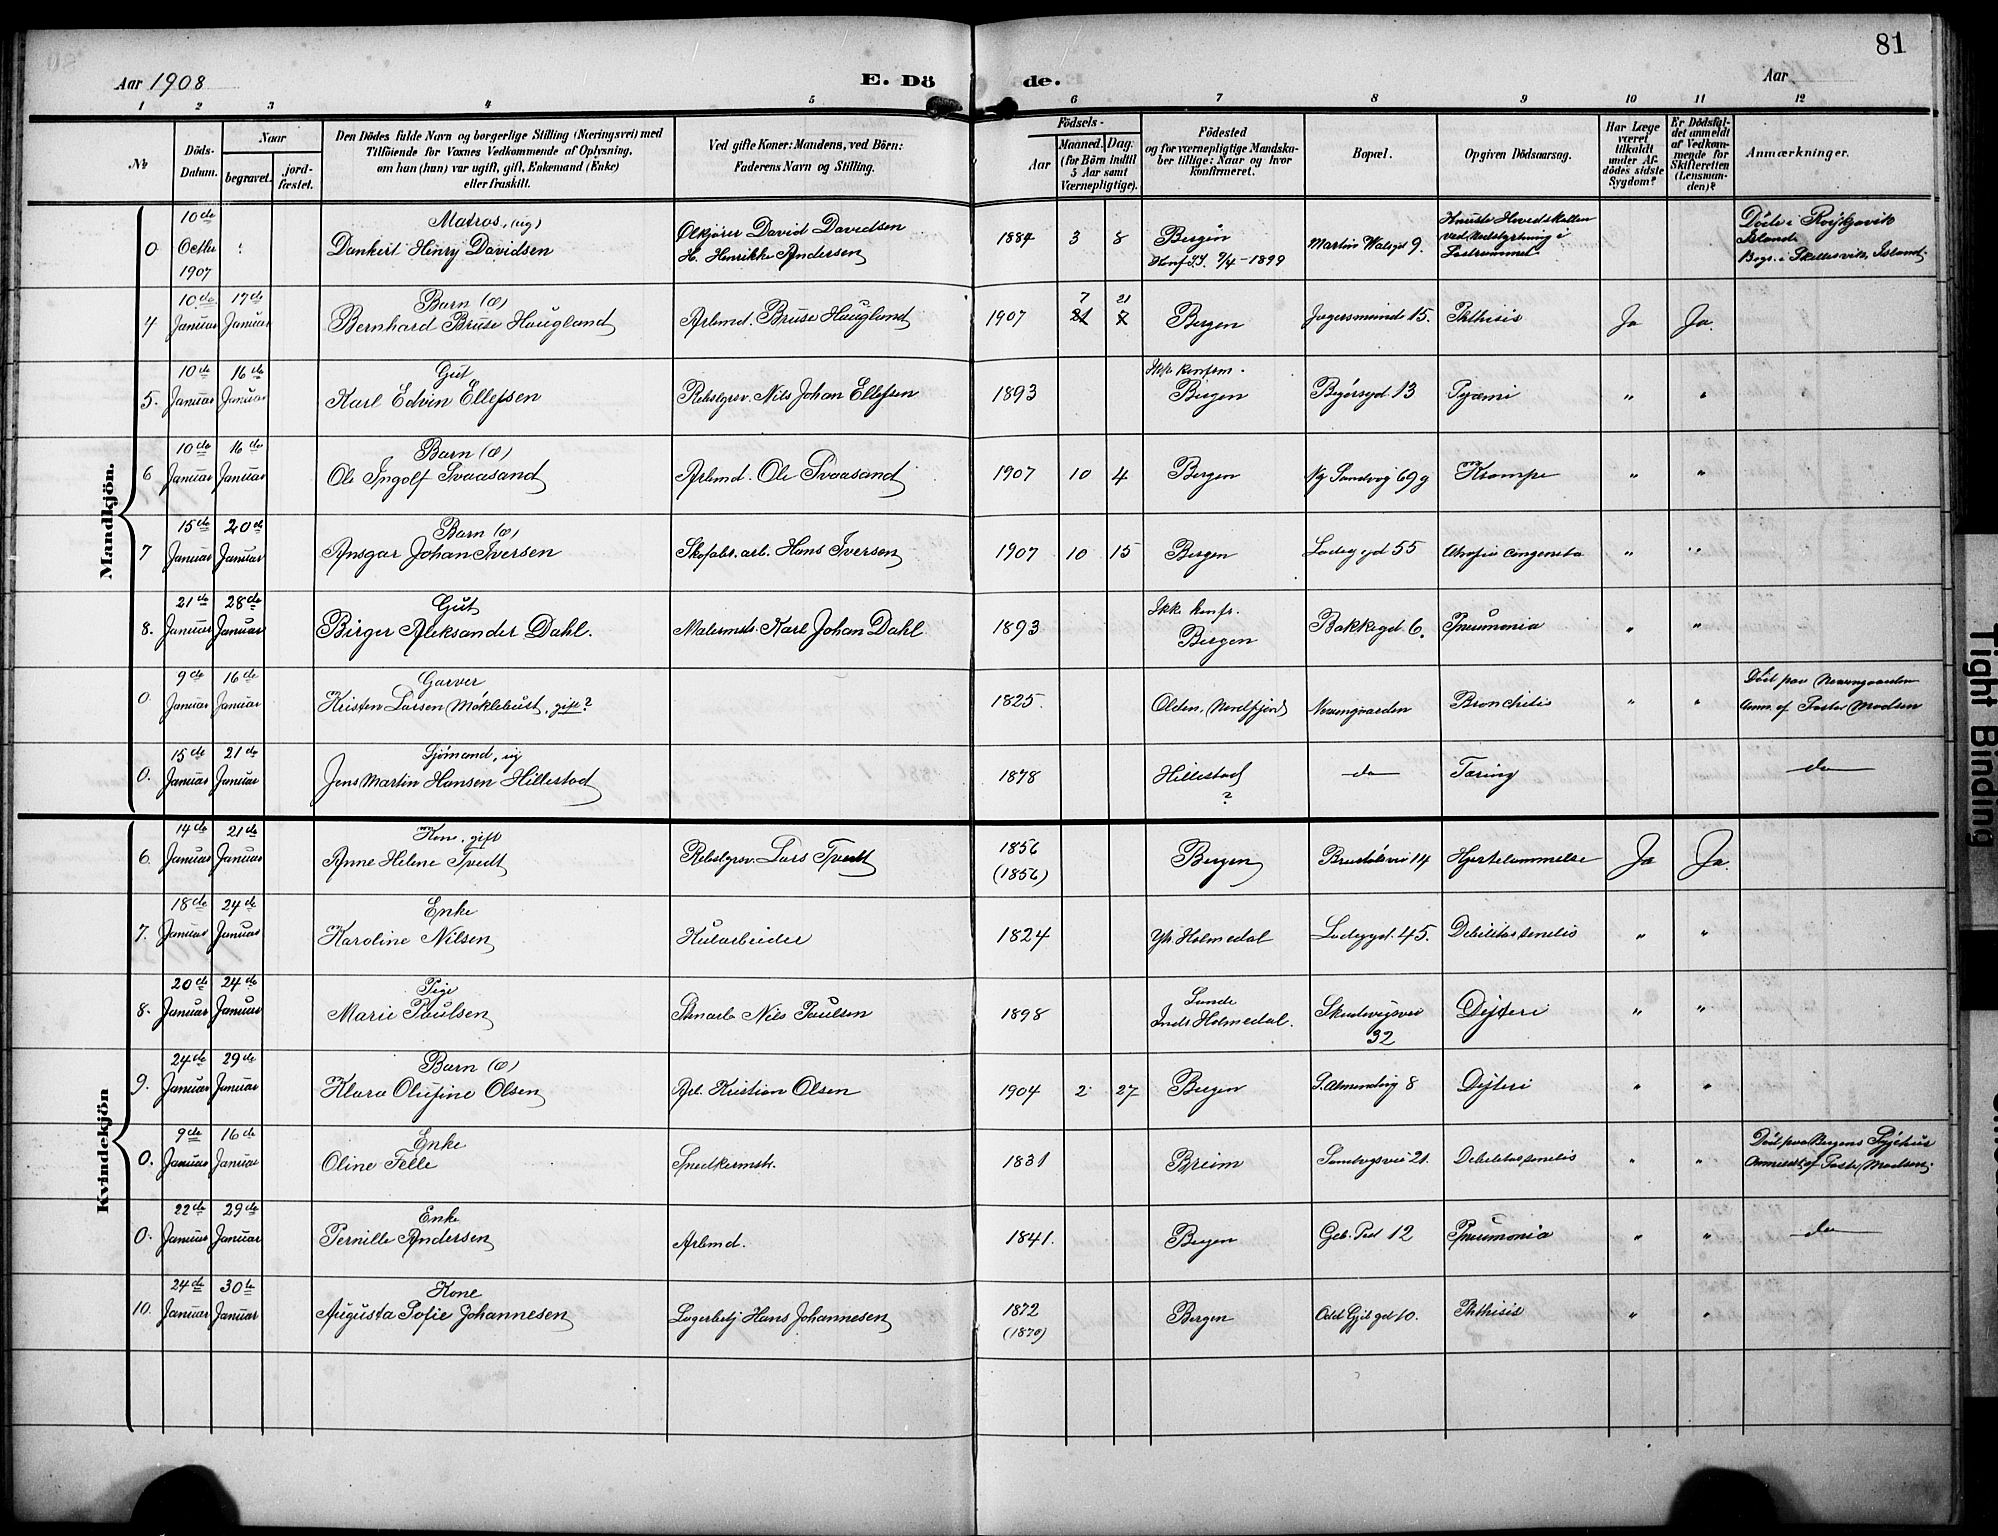 81
Aar 1908
E. Dö de.
Aar
1 2 3 4 5 6 7 8 9 10 11 12
No
Döds-Datum.
Naar
begravet.
jord-fæstet.
Den Dödes fulde Navn og borgerlige Stilling (Næringsvei) med
Tilföiende for Voxnes Vedkommende af Oplysning,
om han (hun) var ugift, gift, Enkemand (Enke)
eller fraskilt.
Ved gifte Koner: Mandens, ved Börn:
Faderens Navn og Stilling.
Födsels-
Aar
Maaned. Dag.
(for Börn indtil
5 Aar samt
Værnepligtige).
Födested
og for værnepligtige Mandska-
ber tillige: Naar og hvor
konfirmeret.
Bopæl.
Opgiven Dödsaarsag.
Har Læge
været
tilkaldt
under Af-
dödes sidste
Sygdom?
Er Dödsfal-
det anmeldt
af Vedkom-
mende for
Skifteretten
(Lensman-
den)?
Anmærkninger.
Mandkjön.
0 10de Octbr 1907 Matros, (ug) Dankert Henry Davidsen Ølkjører David Davidsen H. Henrikke Andersen 1884 3 8 Bergen Konf. 9/4-1899 Martin Walsgd 9. Knuste Hovedskallen ved Nedstyrtning i Lastrummet Døde i Reykjavik Island Begr. i Island.
4 10de Januar 17de Januar Barn (æ) Bernhard Bruse Haugland Arbmd. Bruse Haugland 1907 7 21 Bergen Jægersminde 15. Phthisis Ja Ja.
5. 10de Januar 16de Januar Gut Karl Edvin Ellefsen Rebslgrsv. Nils Johan Ellefsen 1893 Ikke konfirm. Bergen 13 Pyæmi " "
6 10de Januar 16de Januar Barn (æ) Ole Ingolf Svaasand Arbmd. Ole Svaasand 1907 10 4 Bergen Ny Sandvig 69g Krampe " "
7 15de Januar 20de Januar Barn (æ) Ansgar Johan Iversen Skofabr. arb. Hans Iversen 1907 10 15 Bergen Ladegd 55 Atrofia congenita " "
8. 21de Januar 28de Januar Gut Birger Aleksander Dahl. Malermstr. Karl Johan Dahl 1893 Ikke konfr. Bergen Bakkegd. 6. Pneumonia " "
0. 9de Januar 16de Januar Garver Kristen Larsen Møklebust, gift? 1825. Olden, (Nordfjord) Nevengaarden Bronchitis " " Død paa Nevengaarden Anm. af Pastor Madsen
0. 15de Januar 21de Januar Sjømand, ug Jens Martin Hansen Hillestad 1878 Hillestad ? do Tæring do
Kvindekjön
6. 14de Januar 21de Januar Kone. gift Anne Helene Tvedt Rebslgrsv. Lars Tvedt 1856 (1856) Bergen 14 Hjertelammelse Ja Ja.
7. 18de Januar 24de Januar Enke Karoline Nilsen Kularbeider 1824 Yt. Holmedal Ladegd. 45. Debilitas senilis " "
8. 20de Januar 24de Januar Pige Marie Paulsen Stenarb Nils Paulsen 1898 Sande Indr Holmedal. Skudevigsvei 32 Difteri " "
9. 24de Januar 29de Januar Barn (æ) Klara Olufine Olsen Arb. Kristian Olsen 1904 2 27 Bergen 8 Difteri " "
0. 9de Januar 16de Januar Enke Oline Felle Snedkermstr. 1831 Breim Sandvigsvei 21. Debilitas senilis " " Død paa Bergens Sygehus Anmeldt af Pastor Madsen.
0. 22de Januar 29de Januar Enke Pernille Andersen Arbmd. 1841. Bergen 12 Pneumonia " " do
10. 24de Januar 30te Januar Kone Augusta Sofie Johannesen Lagerbetj Hans Johannesen 1872 (1870) Bergen 10. Phthisis " "
Tight Binding